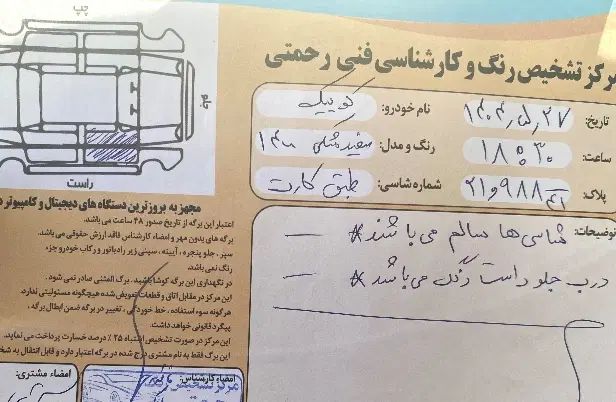 مرکز تشخیص رنگ و کارشناسی فنی رحمتی
تاریخ: ۱۴۰۴٫۵٫۲۷
نام خودرو: کوییک
ساعت: ۱۸:۳۰
رنگ و مدل: سفید مشکی ۱۴۰۰
پلاک:
شماره شاسی: طبق کارت
توضیحات: شاسی ها سالم می باشند
درب جلو راست رنگ می باشد
چپ
جلو
راست
مجهز به بروزترین دستگاه های دیجیتال و کامپیوتر
اعتبار این برگه از تاریخ صدور ۴۸ ساعت می باشد.
برگه های بدون مهر و امضاء کارشناس فاقد ارزش حقوقی می باشد.
سپر، جلو پنجره، آیینه، سینی زیر رادیاتور و رکاب خودرو جزء
رنگ نمی باشد.
در نگهداری این برگه کوشا باشید. برگ المثنی صادر نمی شود.
این مرکز در مقابل اتاق و قطعات تعویض شده هیچگونه مسئولیتی ندارد.
هرگونه سوء استفاده، خط خوردگی، تغییر در برگه ضمن ابطال برگه،
پیگرد قانونی خواهد داشت.
این مرکز در صورت تشخیص اشتباه ۲۵٪ درصد خسارت پرداخت می نماید.
این برگ فقط به نام مشتری درج شده در برگه اعتبار دارد و قابل انتقال به
امضاء کارشناس:
امضاء مشتری:
مرکز تشخیص رنگ